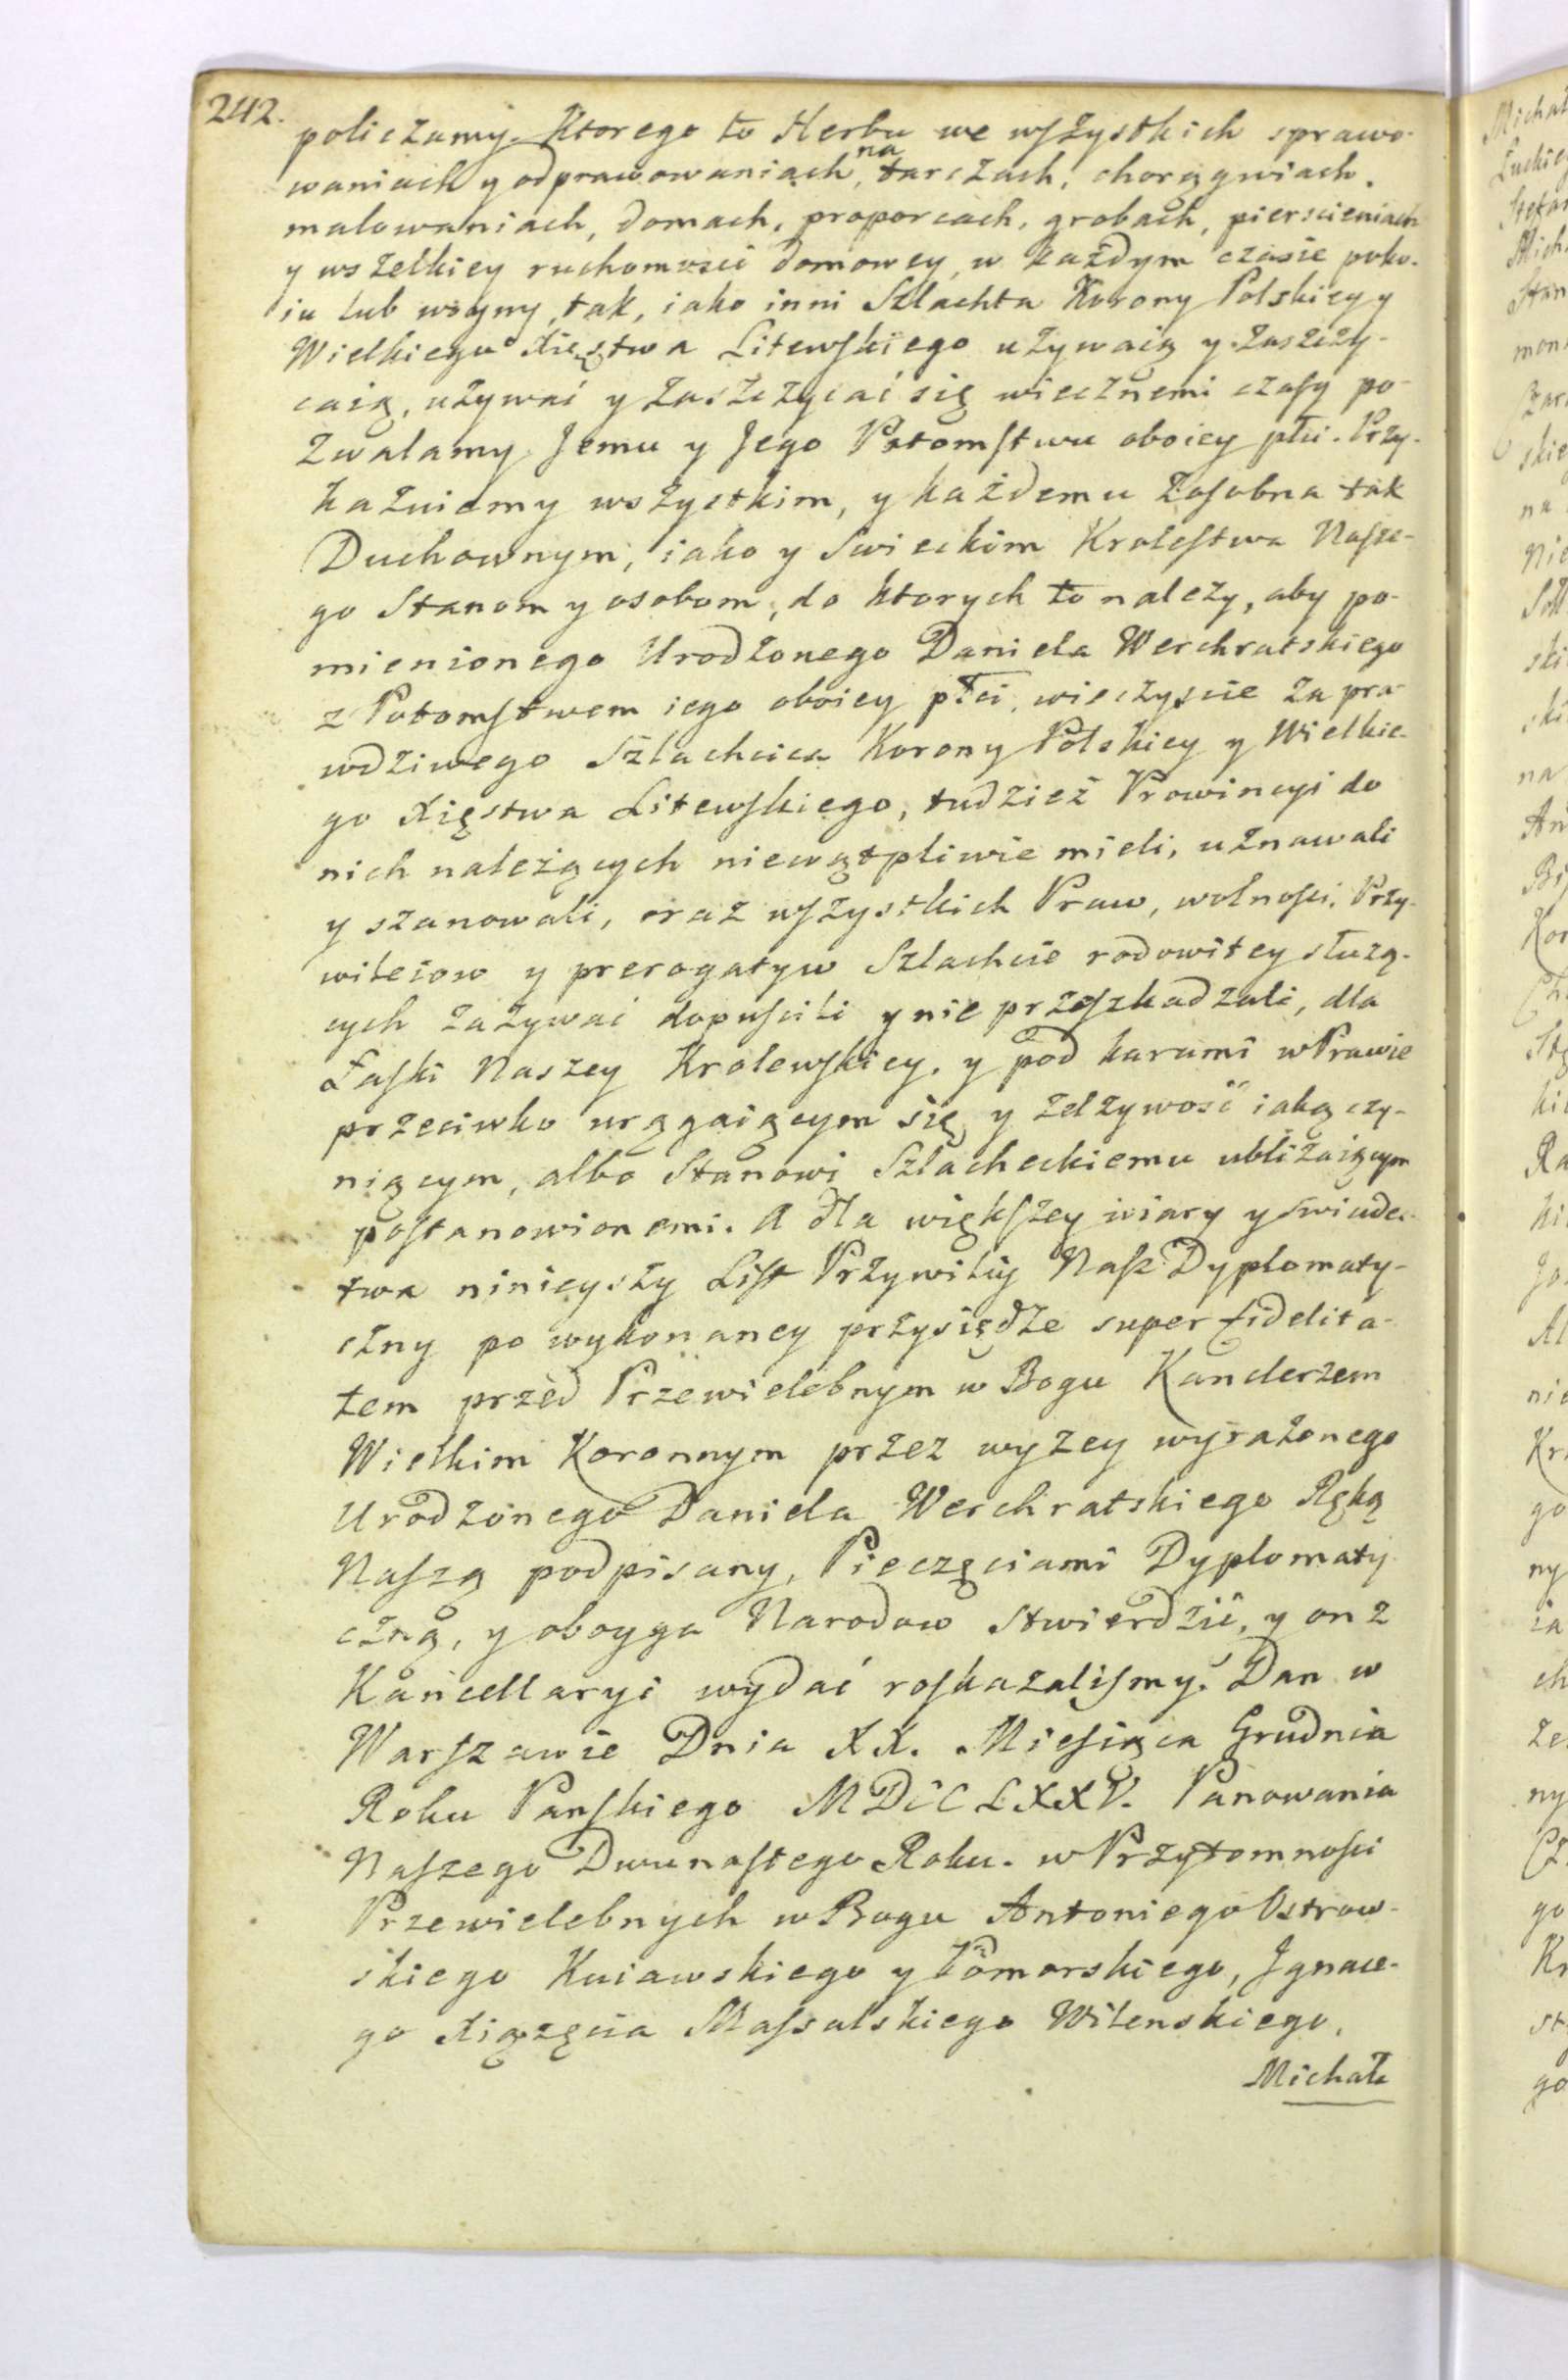 242.
policzamy. Ktorego to Herbu we wszystkich sprawo-
waniach y odprawowaniach, na tarczach, chorągwiach,
malowaniach, domach, proporcach, grobach, pierscieniach
y wszelkiey ruchomosci domowey, w każdym czasie poko-
iu lub woyny, tak, iako inni Szlachta Korony Polskiey y
Wielkiego Xięstwa Litewskiego używaią y zaszczy-
caią, używać y zaszczycać się wiecznemi czasy po-
zwalamy Jemu y Jego Potomstwu oboiey płci. Przy-
kazuiemy wszystkim, y każdemu zosobna tak
Duchownym, iako y Swieckim Krolestwa Nasze-
go Stanom y osobom, do ktorych to nalezy, aby po-
mienionego Urodzonego Daniela Werchratskiego
z Potomstwem iego oboiey płci, wieczyscie za pra-
wdziwego Szlachcica Korony Polskiey y Wielkie-
go Xięstwa Litewskiego, tudzież Prowincyi do
nich należących niewątpliwie mieli, uznawali
y szanowali, oraz wszystkich Praw, wolnosci, Przy-
wileiow y prerogatyw Szlachcie rodowitey służą-
cych zażywać dopuscili y nie przeszkadzali, dla
Łaski Naszey Krolewskiey, y pod karami w Prawie
przeciwko urągaiącym się, y zelżywość iaką czy-
niącym, albo Stanowi Szlacheckiemu ubliżaiącym
postanowionemi. A dla większey wiary y swiadec-
twa ninieyszy List Przywiley Nasz Dyplomaty-
czny po wykonaney przysiędze super fidelita-
tem przed Przewielebnym w Bogu Kanclerzem
Wielkim Koronnym przez wyzey wyrażonego
Urodzonego Daniela Werchratskiego Ręką
Naszą podpisany, Pieczęciami Dyplomaty-
czną, y oboyga Narodow stwierdzić, y on z
Kancellaryi wydać roskazalismy. Dan w
Warszawie Dnia XX. Miesiąca Grudnia
Roku Panskiego MDCCLXXV. Panowania
Naszego Dwunastego Roku. w Przytomnosci
Przewielebnych w Bogu Antoniego Ostrow-
skiego Kuiawskiego y Pomorskiego, Ignace-
go Xiążęcia Massalskiego Wilenskiego,
Michała